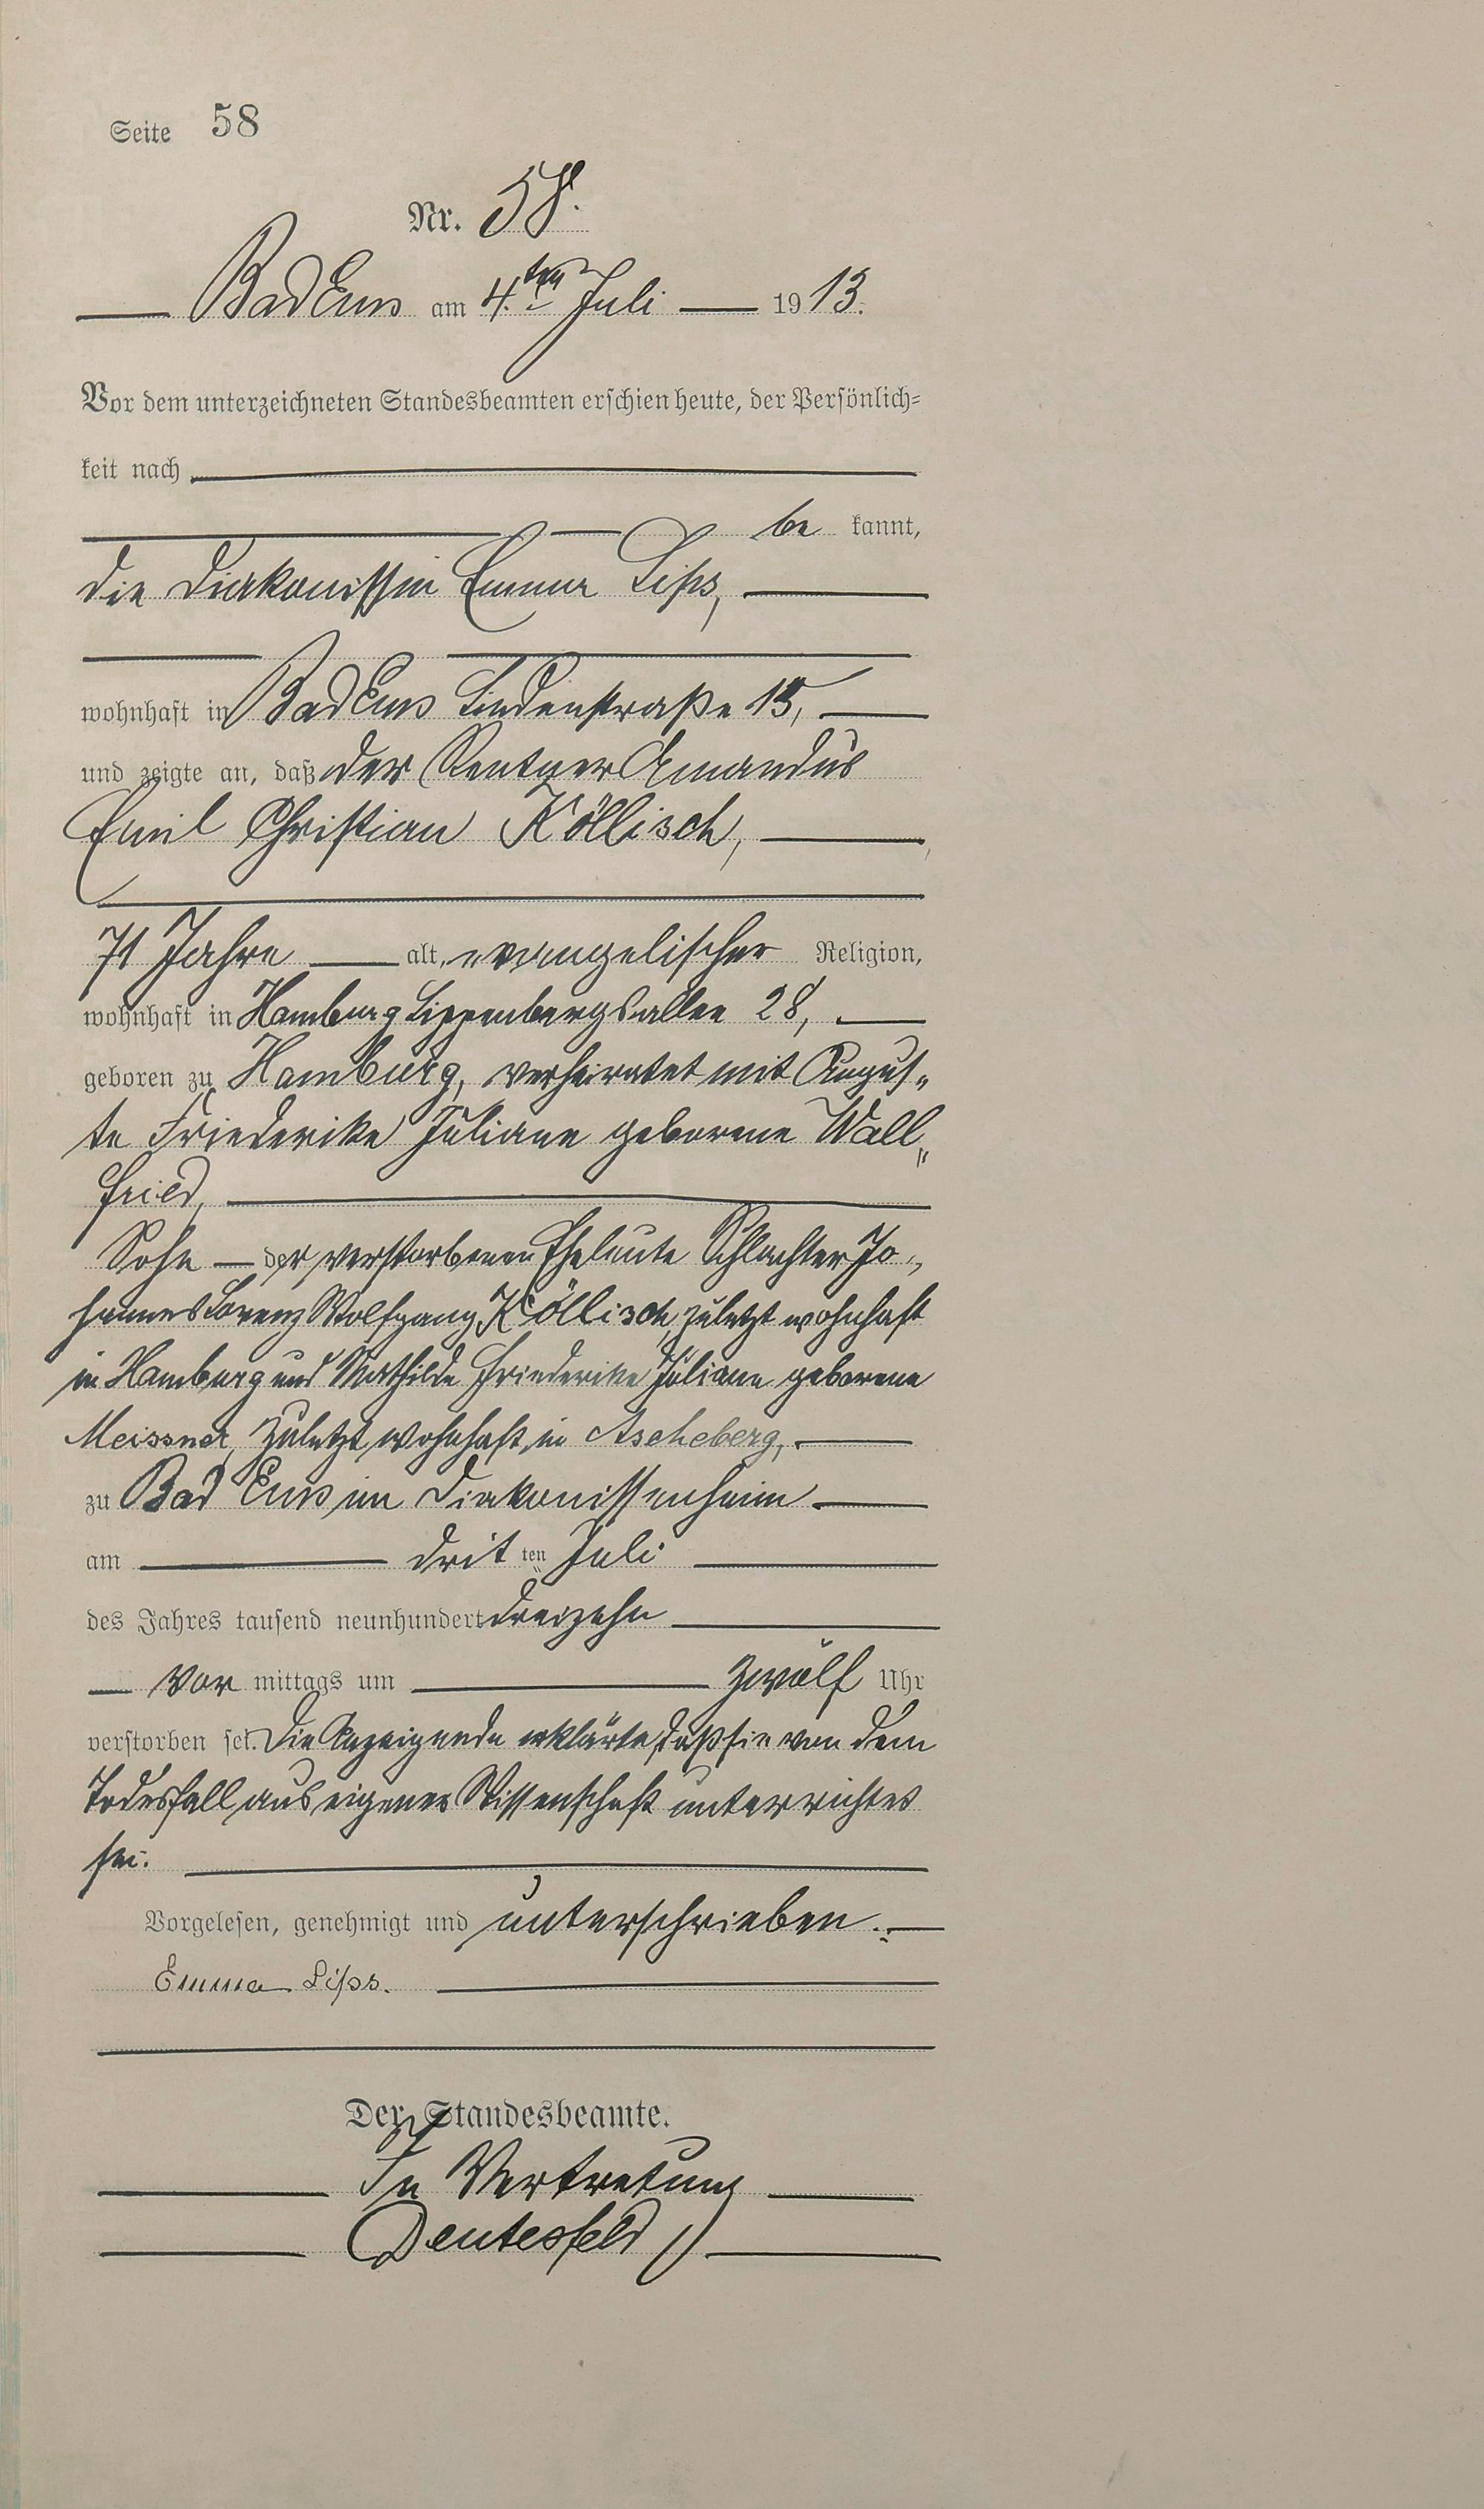 Seite 58
Nr. 58.
Bad Ems am 4.ten Juli 1913.
Vor dem unterzeichneten Standesbeamten erschien heute, der Persönlich=
keit nach
be kannt,
die Diakonissin Emma Lips,
wohnhaft in Bad Ems Lindenstraße 15,
und zeigte an, daß der Rentner Amandus
Emil Christian Köllisch,
71 Jahre alt, evangelischer Religion,
wohnhaft in Hamburg Lippenbergsallee 28,
geboren zu Hamburg, verheiratet mit Augus„
te Friederike Juliane geborene Wall„
fried,
Sohn der verstorbenen Eheleute Schlachter Jo„
hannes Lorenz Wolfgang Köllisch, zuletzt wohnhaft
in Hamburg und Mathilde Friederike Juliane geborene
Meissner, zuletzt wohnhaft in Ascheberg,
zu Bad Ems im Diakonissenheim
am dritten Juli
des Jahres tausend neunhundert dreizehn
Vor mittags um zwölf Uhr
verstorben sei. Die Anzeigende erklärte, daß sie von dem
Todesfall aus eigener Wissenschaft unterrichtet
sei.
Vorgelesen, genehmigt und unterschrieben.
Emma Lips.
Der Standesbeamte.
In Vertretung
Deutesfeld